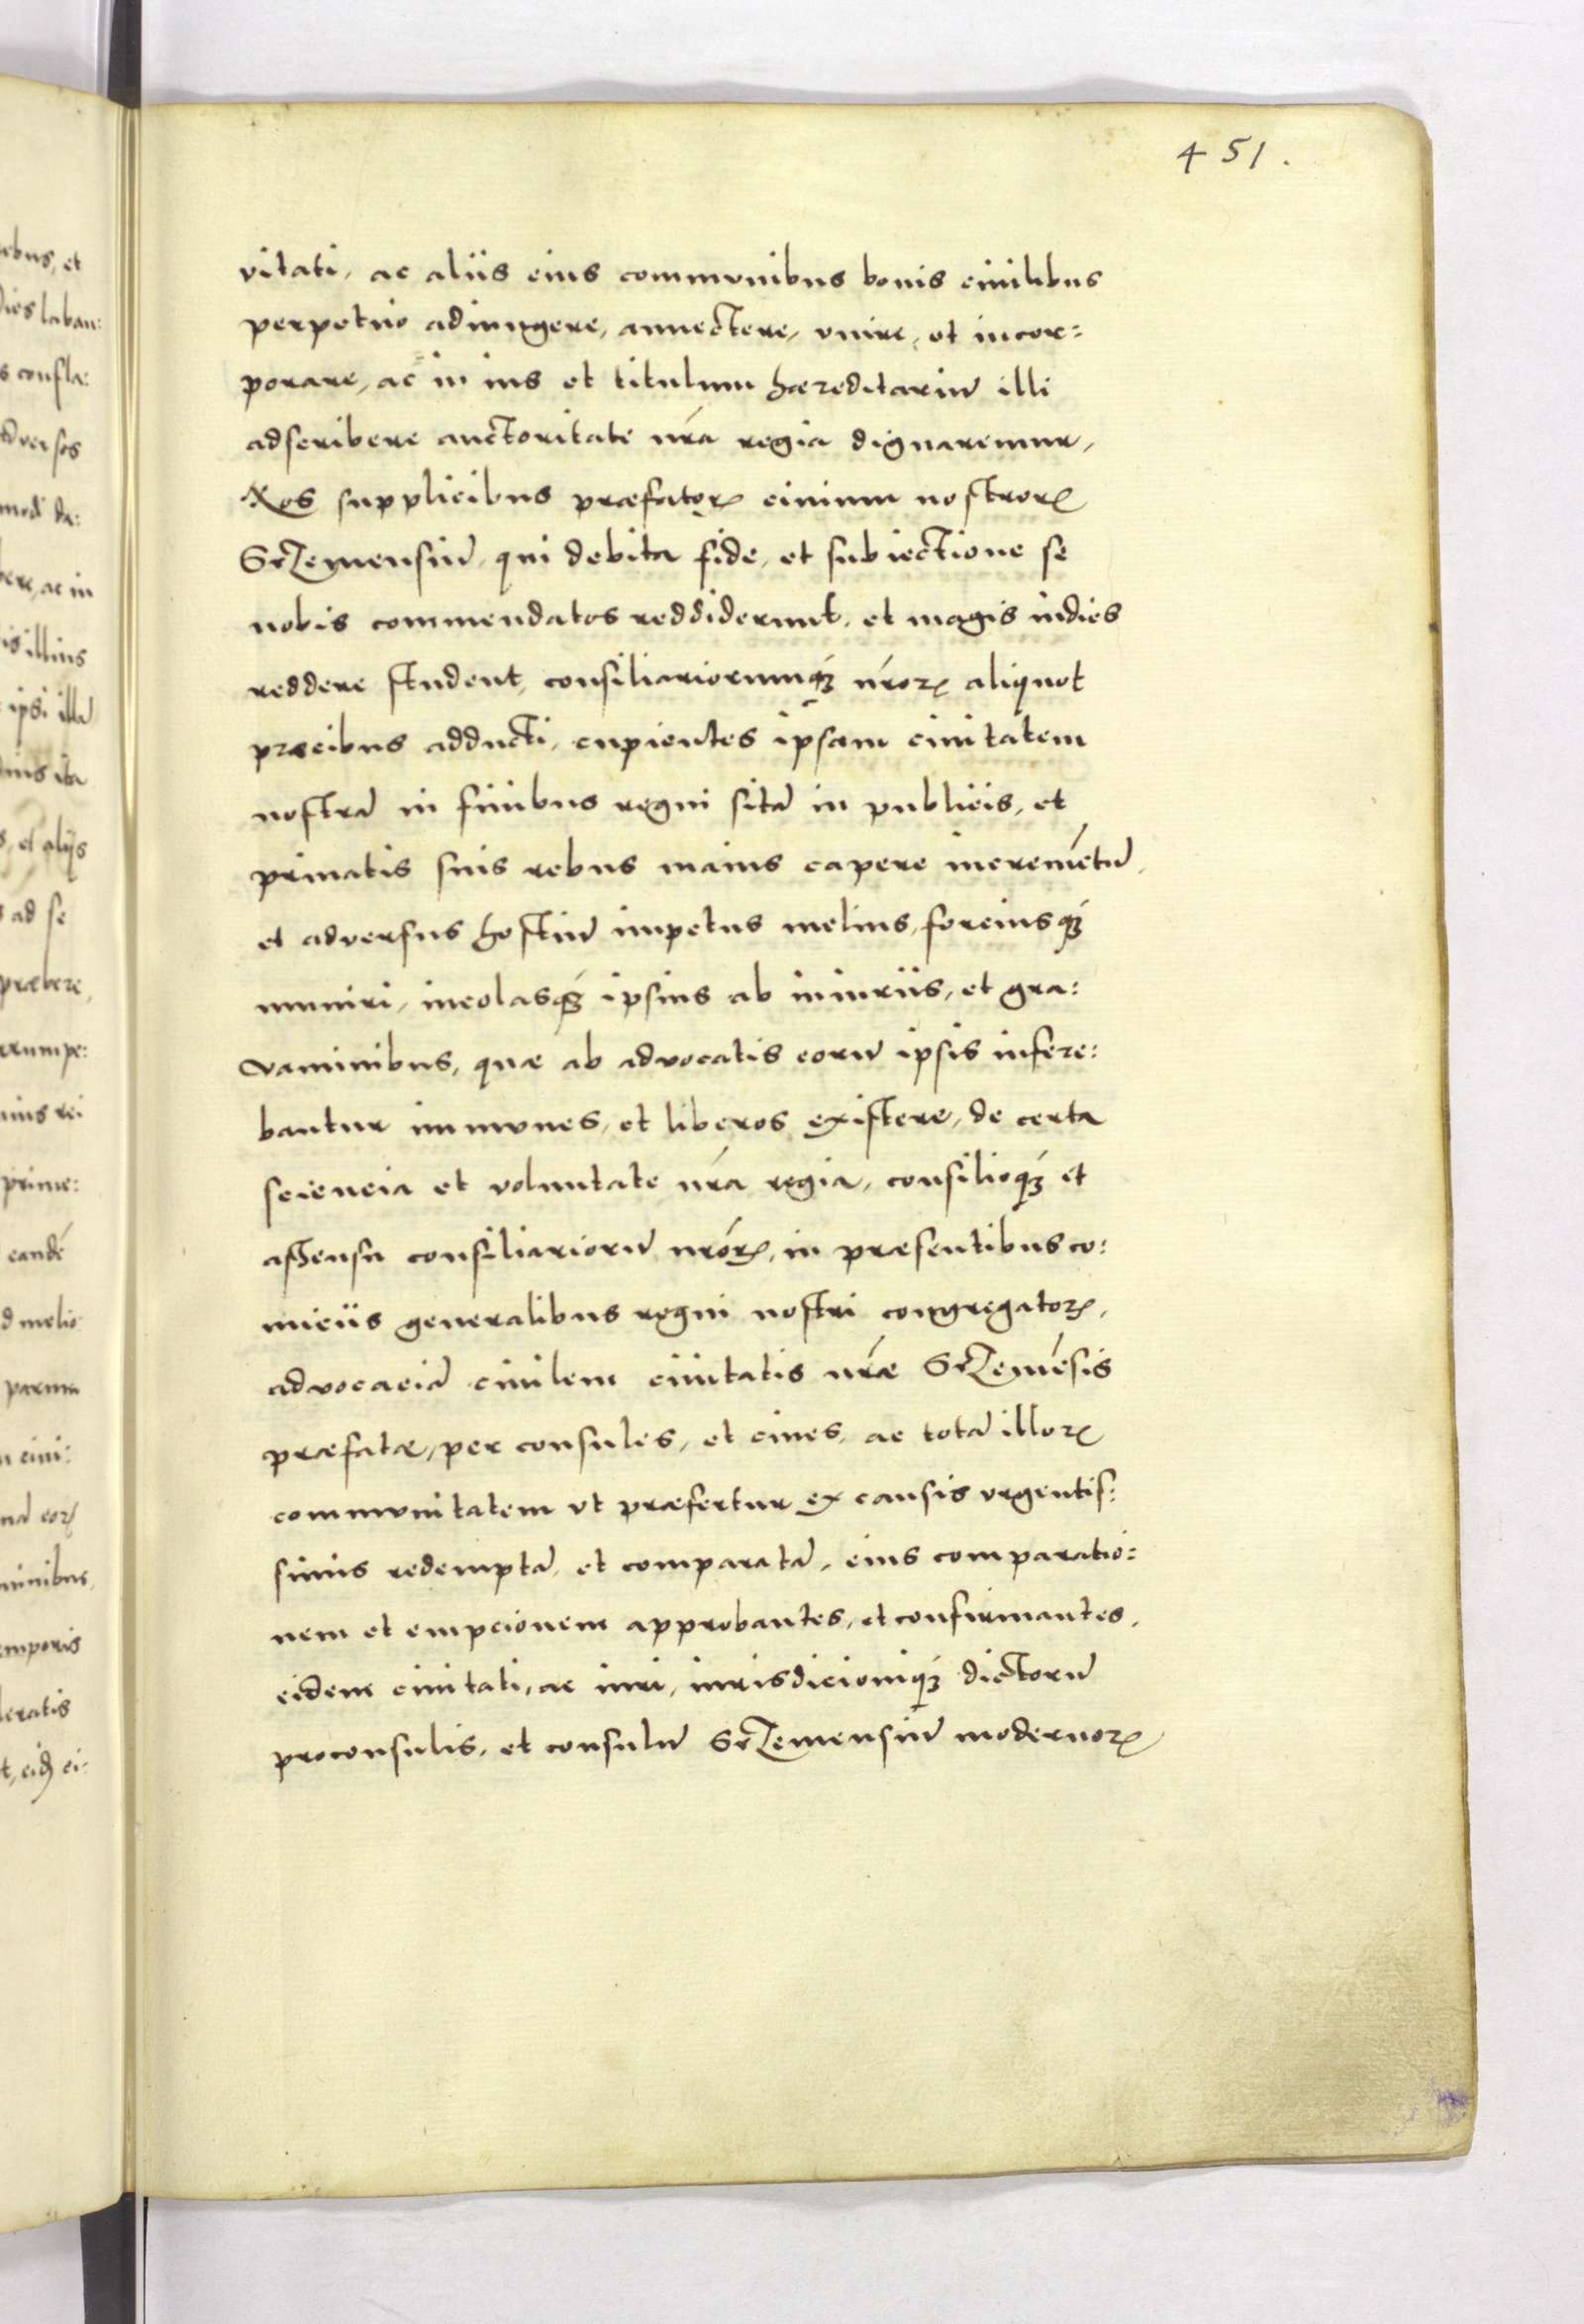 451.
vitati, ac aliis eius communibus bonis ciuilibus
perpetuo adiungere, annectere, vnire, et incor:
porare, ac in ius et titulum hæreditariu̅ illi
adscribere auctoritate nr̃a regia dignaremur,
Nos supplicibus præfatoꝝ ciuium nostroꝝ
Srzemensiu̅, qui debita fide, et subiectione se
nobis commendatos reddiderunt, et magis indies
reddere student, consiliariorumqꝫ nr̃oꝝ aliquot
præcibus adducti, cupientes ipsam ciuitatem
nostra̅ in finibus regni sita̅ in publicis, et
priuatis suis rebus maius capere increme̅tu̅,
et adversus hostiu̅ impetus melius, forciusqꝫ
muniri, incolasqꝫ ipsius ab iniuriis, et gra:
vaminibus, quæ ab advocatis eoru̅ ipsis infere:
bantur immunes, et liberos existere, de certa
sciencia et voluntate nr̃a regia, consilioqꝫ et
assensu consiliarioru̅ nr̃oꝝ, in præsentibus co:
miciis generalibus regni nostri congregatoꝝ,
advocacia̅ ciuilem ciuitatis nr̃æ Srzeme̅sis
præfatæ, per consules, et ciues, ac tota̅ illoꝝ
communitatem vt præfertur ex causis vrgentis:
simis redempta̅, et comparata̅, eius comparatio:
nem et empcionem approbantes, et confirmantes,
eidem ciuitati, ac iuri, iurisdicioniqꝫ dictoru̅
proconsulis, et consulu̅ Srzemensiu̅ modernoꝝ